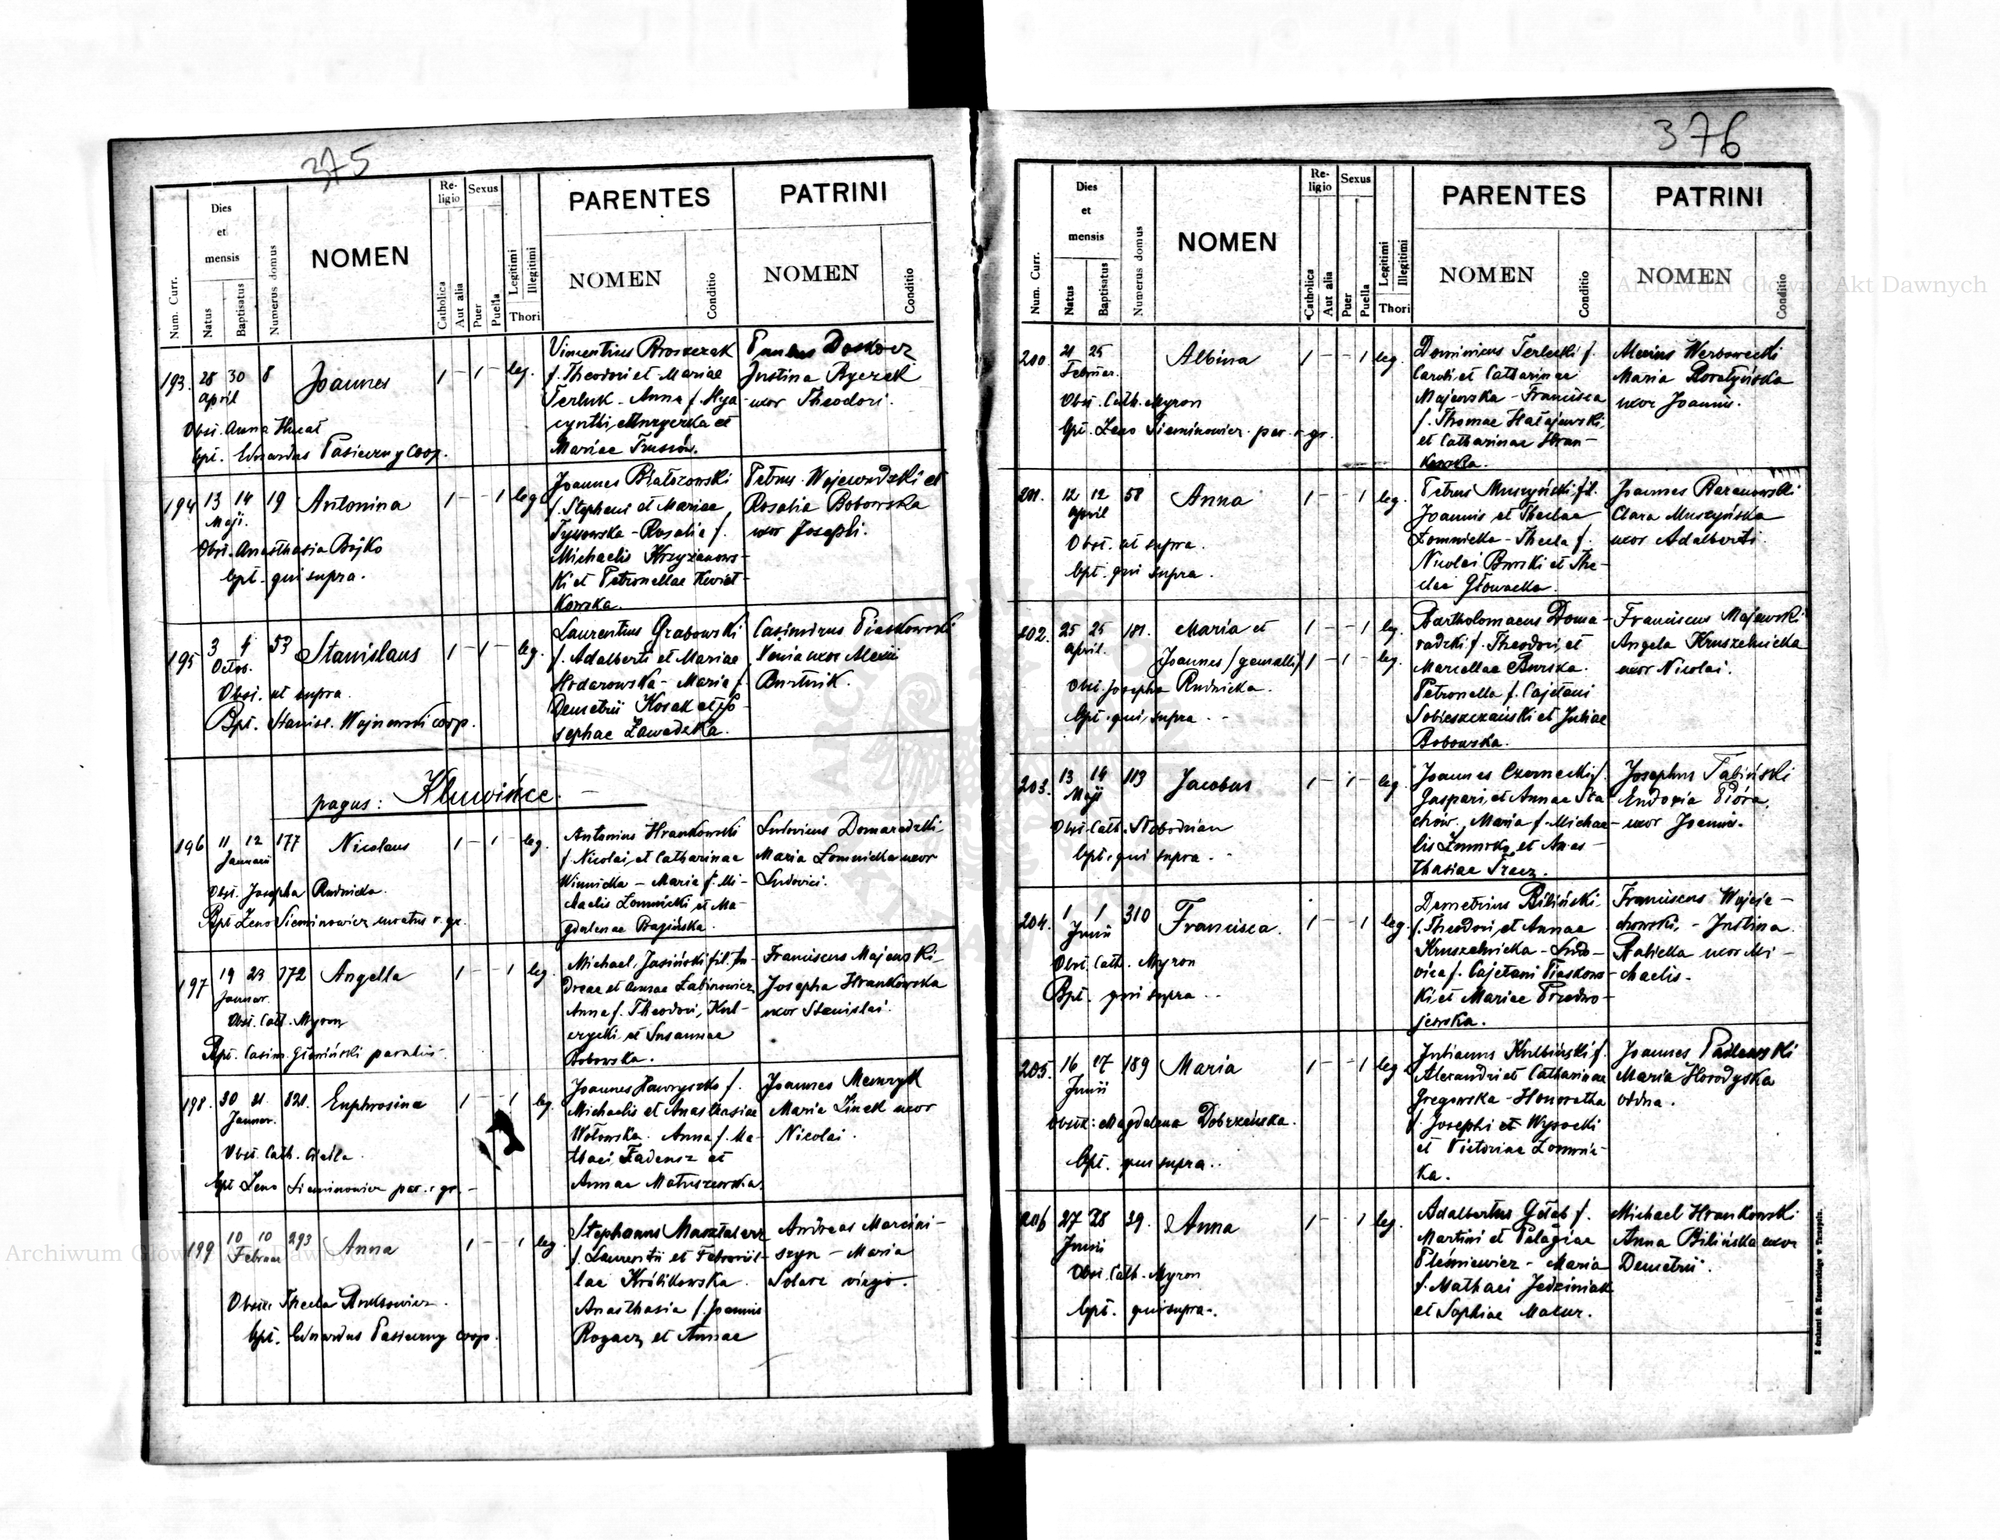 375
Num. Curr.
Dies et mensis
Natus
Baptisatus
Numerus domus
NOMEN
Religio
Catholica
Aut alia
Sexus
Puer
Puella
Legitimi
Illegitimi
Thori
PARENTES
NOMEN
Conditio
PATRINI
NOMEN
Conditio
193. 28 30 8 Joannes 1 – 1 – leg.
April
Obst. Anna
bpt. Edwardus Pasieczny Coop.
f. Theodori et Mariae
Terluk - Anna f. Hya-
cynthi et
Mariae
Justina
uxor Theodori.
194 13 14 19 Antonina 1 – – 1 leg
Maji.
Obst. Anasthasia Bojko
bpt. qui supra.
Joannes Białozowski
f. Stephani et Mariae
- Rosalia f.
Michaelis Krzyżanows-
ki et Petronellae Kwiat-
kowska.
Petrus Wojewodzki et
Rosalia Bobowska
uxor Josephi.
195 3 4 53 Stanislaus 1 – 1 – leg.
Octob.
Obst. ut supra
Bpt. Stanisl. Wojnowski coop.
Laurentius Grabowski
f. Adalberti et Mariae
Hodarowska - Maria f.
Demetrii Kosak et Jo-
sephae Zawadzka.
Casimirus Piaskowski
Xenia uxor Alexii
Burtnik.
pagus: Kluwińce. –
196 11 12 177 Nicolaus 1 – 1 – leg.
Januarii
Obst. Josepha Rudnicka.
Bpt Zeno Sieminowicz curatus r. gr.
Antonius Hrankowski
f. Nicolai, et Catharinae
Winnicka - Maria f. Mi-
chaelis Łomnicki et Ma-
gdalenae
Ludovicus Domaradzki
Maria Łomnicka uxor
Ludovici.
197 19 23 172 Angella 1 – – 1 leg.
Januar.
Obst. Cath. Myron
Bpt. Casim. Głowiński parochus
Michael Jasiński fil. An-
dreae et Annae Łabinowicz
Anna f. Theodori, Kul-
czycki, et Susannae
Bobowska.
Franciscus Majewski
Josepha Hrankowska
uxor Stanislai.
198. 30 31. 321. Euphrosina 1 – – 1 leg.
Januar.
Obst. Cath.
bpt Zeno Sieminowicz par. r. gr. –
Joannes Hawryszko f.
Michaelis et Anasthasiae
Wołowska. Anna f. Ma-
thaei et
Annae Matuszewska.
Joannes
Maria Linek uxor
Nicolai.
199 10 10 293 Anna 1 – – 1 leg
Februar
Obst. Thecla
bpt. Edwardus Pasieczny coop.
Stephanus Marszalerz
f. Laurentii et Petronil-
lae Królikowska.
Anasthasia f. Joannis
Rogacz, et Annae
Andreas Marcini-
szyn - Maria
virgo.
376
Num. Curr.
Dies et mensis
Natus
Baptisatus
Numerus domus
NOMEN
Religio
Catholica
Aut alia
Sexus
Puer
Puella
Legitimi
Illegitimi
Thori
PARENTES
NOMEN
Conditio
PATRINI
NOMEN
Conditio
200. 21 25 Albina 1 – – 1 leg.
Februar.
Obst. Cath. Myron
bpt. Zeno Sieminowicz par. r. gr.
Dominicus Terlecki f.
Caroli et Catharinae
Majewska - Francisca
f. Thomae Hałajewski,
et Catharinae Hran-
kowska.
Alexius Werbowecki
Maria
uxor Joannis.
201. 12 12 58 Anna 1 – – 1 leg.
April
Obst. ut supra.
bpt. qui supra.
Petrus Muszyński fil.
Joannis et Theclae
Łomnicka - Thecla f.
Nicolai Burski et The-
clae Głowacka.
Joannes Baranowski
Clara Muszyńska
uxor Adalberti.
202. 25 25 181. Maria et 1 – – 1 leg.
April.
Joannes /gemelli/ 1 – 1 – leg.
Obst. Josepha Rudnicka.
bpt. qui supra - -
Bartholomaeus Doma-
radzki f. Theodori, et
Marcellae Burska.
Petronella f. Cajetani
Sobieszczański et Juliae
Bobowska.
Franciscus Majewski
Angela Kruszelnicka
uxor Nicolai.
203. 13 14 113 Jacobus 1 – 1 – leg.
Maji
Obst. Cath. Słobodzian
bpt. qui supra - -
Joannes Czarnecki f.
Gaspari, et Annae Sta-
chów. Maria f. Michae-
lis et Anas-
thasiae
Josephus Tabiński
Eudoxia Pióra,
uxor Joannis.
204. 1 1 310 Francisca. 1 – – 1 leg.
Junii
Obst. Cath. Myron
Bpt. qui supra - -
Demetrius Biliński
f. Theodori, et Annae
Kruszelnicka - Ludo-
vica f. Cajetani Piaskows-
ki et Mariae Przedwo-
jewska.
Franciscus Wojcie-
chowski, - Justina
uxor Mi-
chaelis.
205. 16 17 189 Maria 1 – – 1 leg
Junii
Obstt: Magdalena Dobrzańska.
bpt. qui supra..
Julianus Kulbiński f.
Alexandri et Catharinae
Gregorska - Honoratha
f. Josephi et Wysocki
et Victoriae Łomnic-
ka.
Joannes Padlewski
Maria Horodyska
vidua.
206 27 28 39. Anna 1 – – 1 leg.
Junii
Obst. Cath. Myron
bpt. qui supra.
Adalbertus Gołąb f.
Martini et Pelagiae
Pleśniewicz - Maria
f. Mathaei Jedziniak
et Sophiae Mazur.
Michael Hrankowski
Anna Bilińska uxor
Demetrii.
Archiwum Główne Akt Dawnych
Archiwum Główne Akt Dawnych